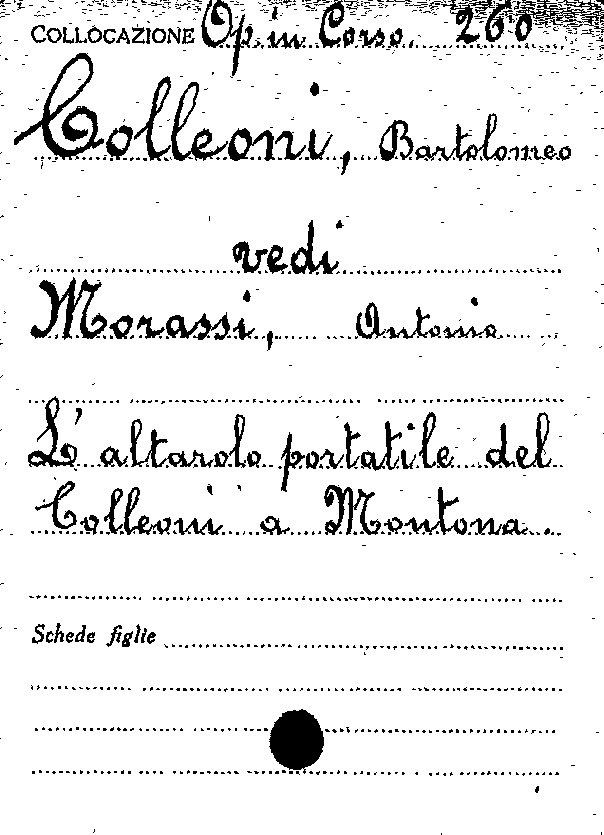 COLLOCAZIONE Op. in Corso. 260
Colleoni, Bartolomeo
vedi
Morassi, Antonio
L'altarolo portatile del
Colleoni a Montona.
Schede figlie